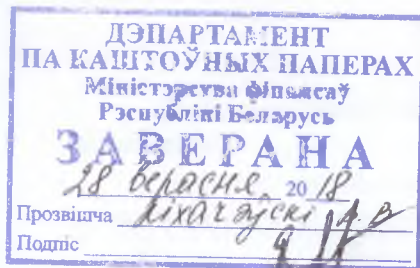 ДЭПАРТАМЕНТ
ПА КАШТОЎНЫХ ПАПЕРАХ
Міністэрства фінансаў
Рэспублікі Беларусь
ЗАВЕРАНА
28 верасня 2018
Прозвішча Ліхачэўскі А.В
Подпіс